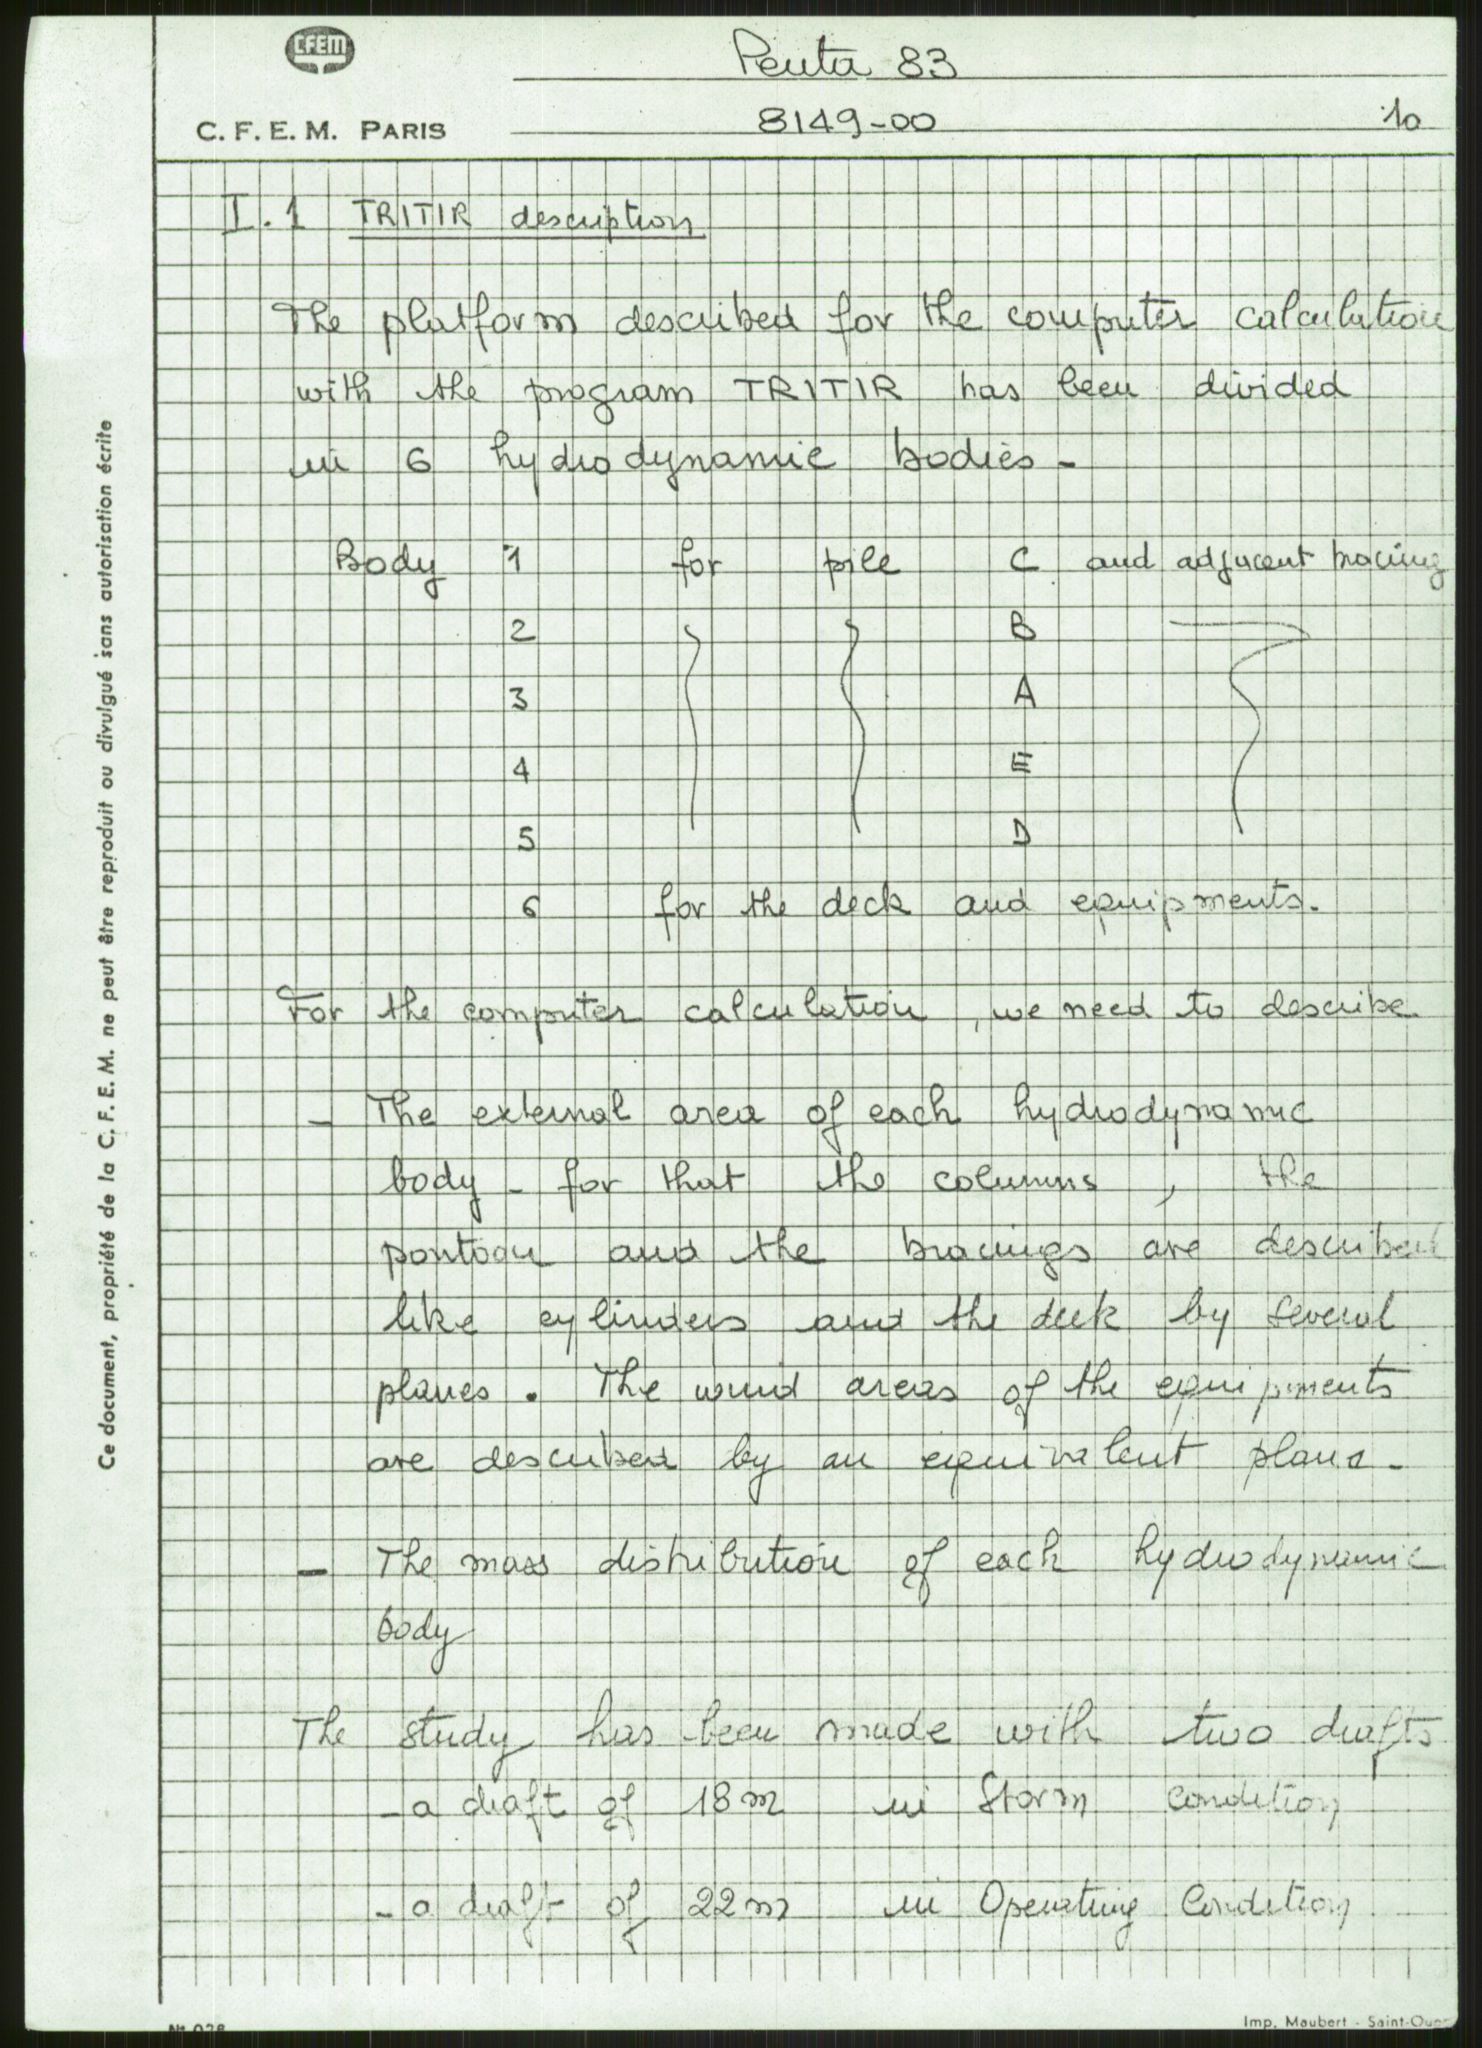 CFEM
Penta 83
C. F. E. M. PARIS
8149-00
10
I.1 TRITIR description
The platform described for the computer calculation
with the program TRITIR has been divided
in 6 hydrodynamic bodies -
Body 1 for pile C and adjacent bracing
2 B
3 A
4 E
5 D
6 for the deck and equipments.
For the computer calculation, we need to describe
- The external area of each hydrodynamic
body - for that the columns, the
pontoon and the bracings are described
like cylinders and the deck by several
planes. The wind areas of the equipments
are described by an equivalent plane -
- The mass distribution of each hydrodynamic
body
The study has been made with two drafts
- a draft of 18m in Storm condition
- a draft of 22m in Operating Condition
Ce document, propriété de la C. F. E. M. ne peut être reproduit ou divulgué sans autorisation écrite
Imp. Maubert - Saint-Ouen